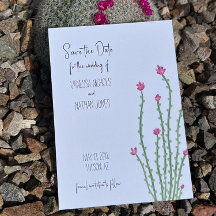 Save the Date
for the wedding of
VANESSA NICHOLS
and
NATHAN JONES
TUCSON, AZ
formal invitation to follow